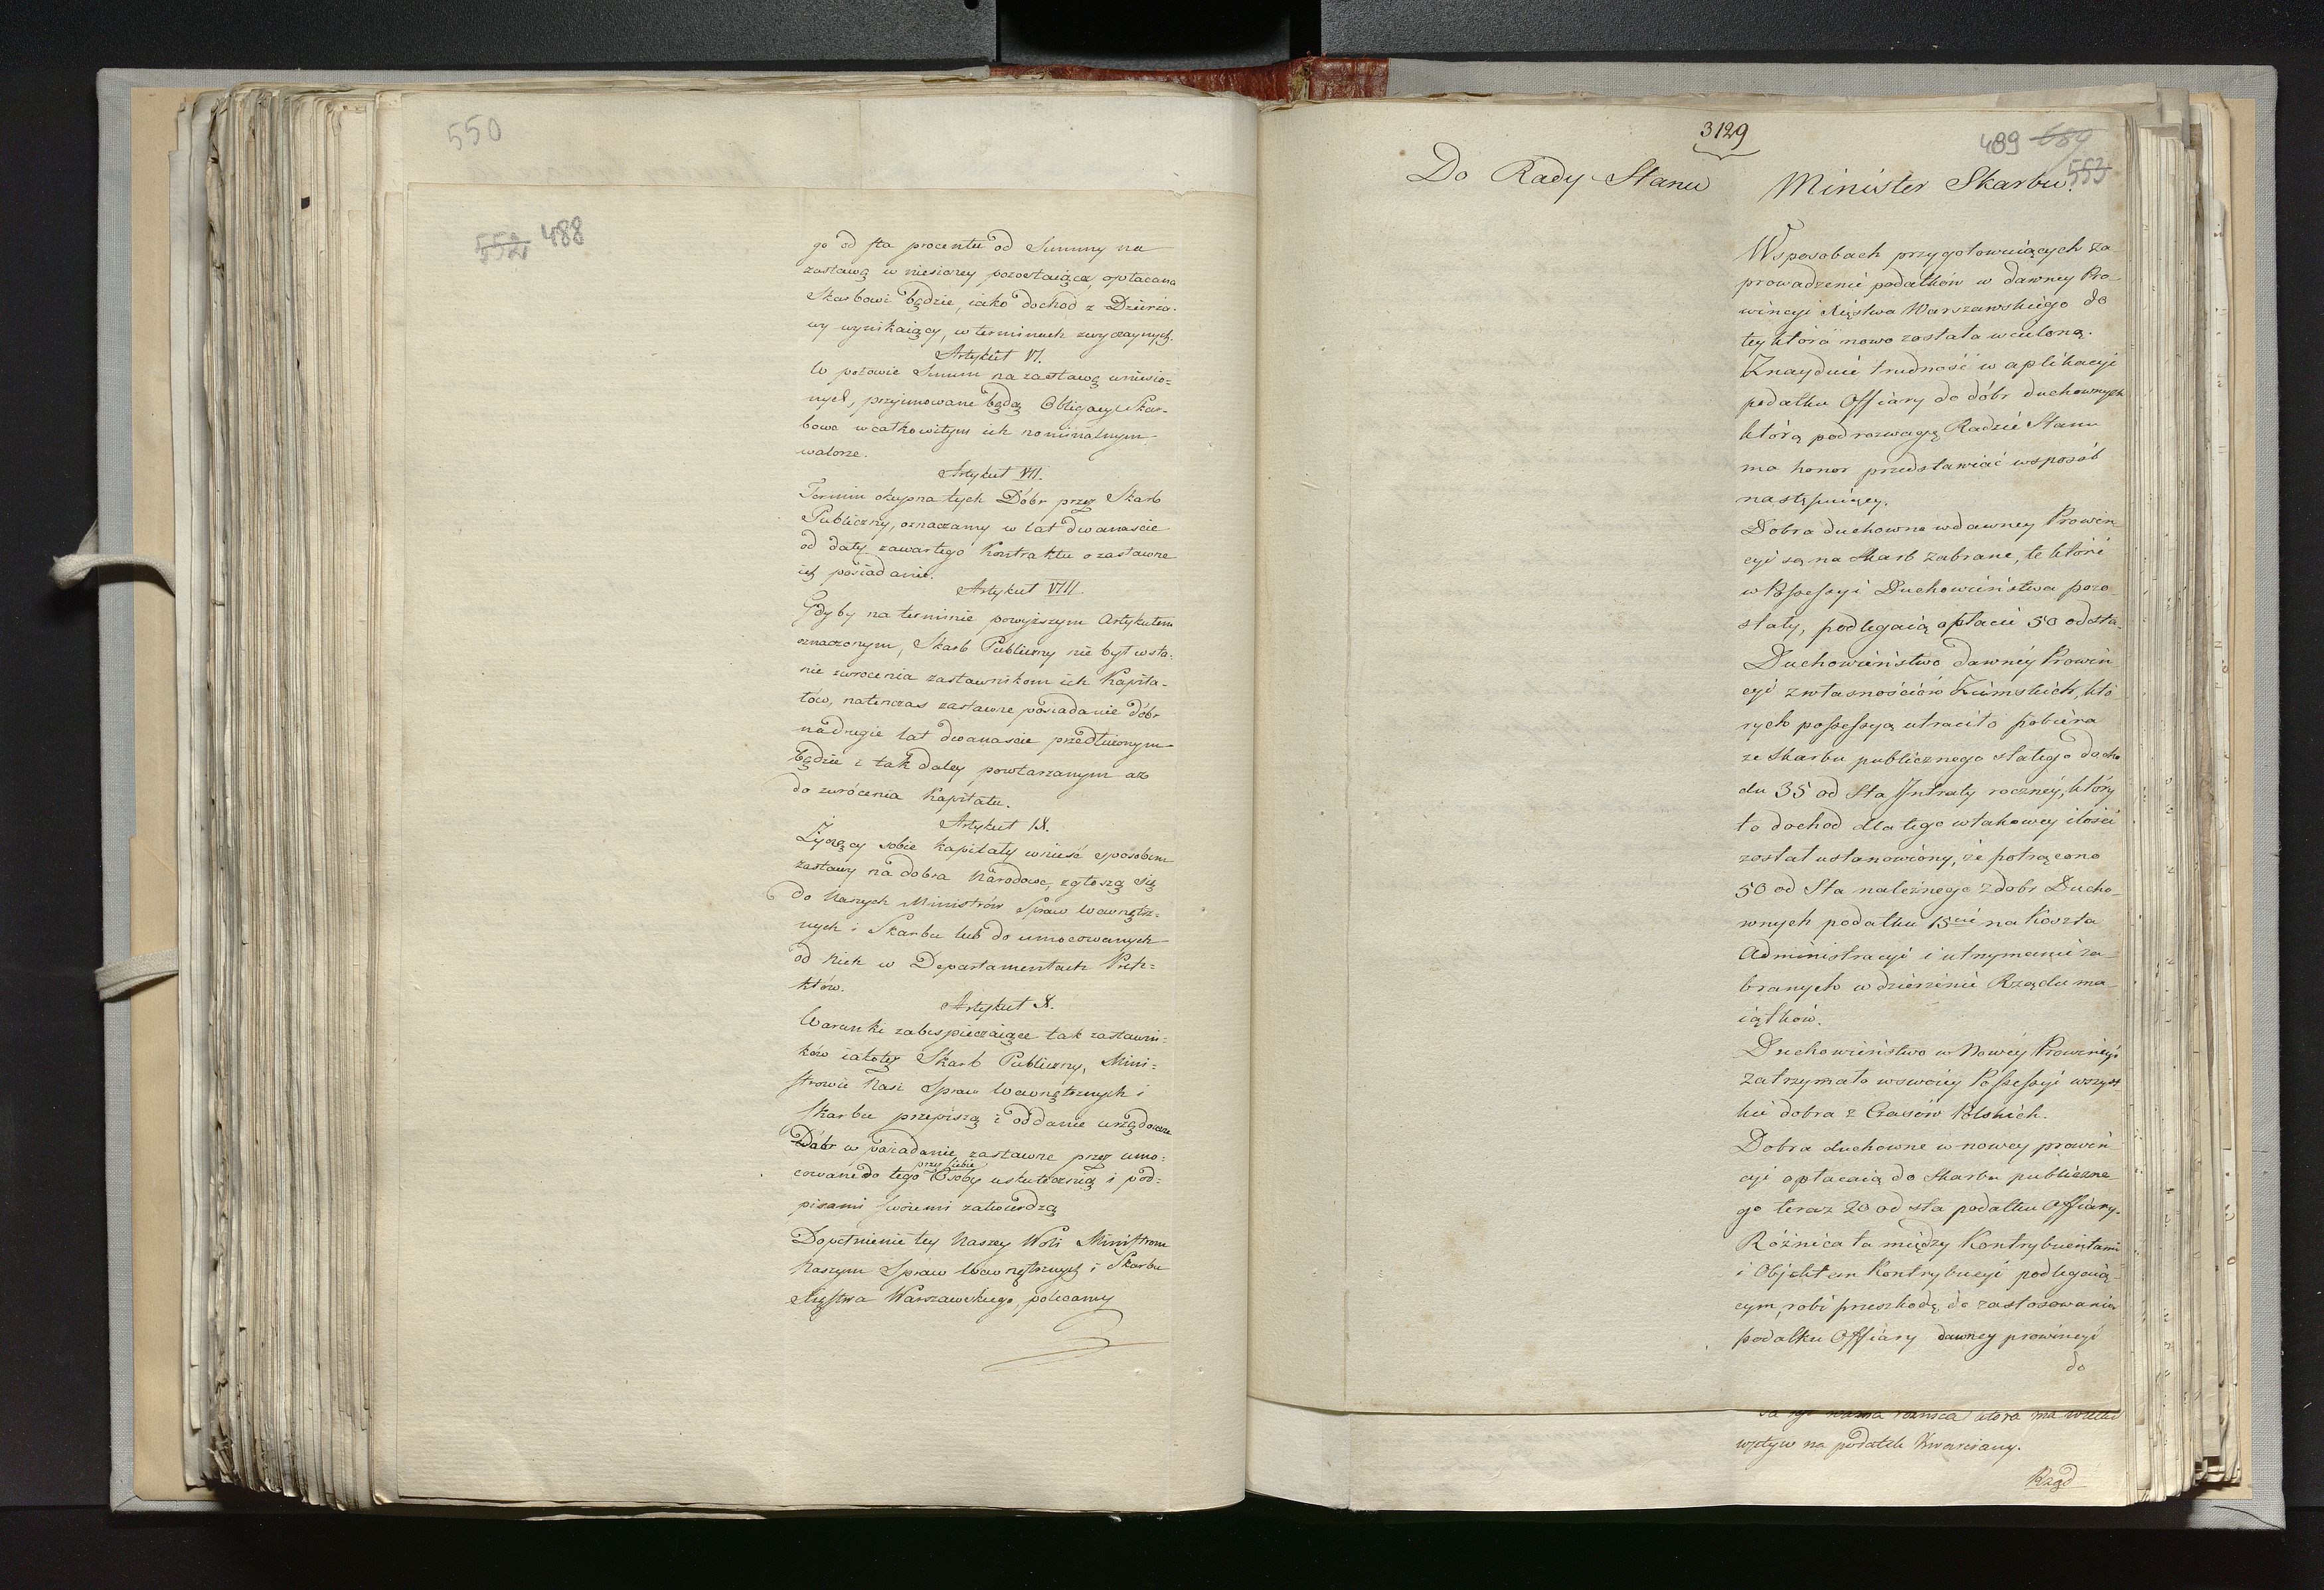 550
552 488
go od sta procentu od Summy na
zastawę w niesioney pozostaiąca, opłacana
Skarbowi będzie, iako dochod z Dzierża-
wy wynikaiący, w terminach zwyczaynych.
Artykuł VI.
W połowie Summ na zastawę wniesio=
nych, przyimowane będą Obligacye Skar-
bowe w całkowitym ich nominalnym
walorze.
Artykuł VII.
Termin okupna tych Dóbr przez Skarb
Publiczny, oznaczamy w lat dwanaście
od daty zawartego Kontraktu o zastawne
ich posiadanie.
Artykuł VIII.
Gdyby na terminie powyższym Artykułem
oznaczonym, Skarb Publiczny nie był w sta-
nie zwrocenia zastawnikom ich Kapita-
łów, natenczas zastawne posiadanie dóbr
na drugie lat dwanaście przedłużonym
będzie i tak daley powtarzanym aż
do zwrócenia Kapitału.
Artykuł IX.
Życzący sobie kapitały wnieść sposobem
zastawy na dobra Narodowe, zgłoszą się
do Naszych Ministrów Spraw Wewnętrz=
nych i Skarbu lub do umocowanych
od Nich w Departamentach Prefe=
któw.
Artykuł X.
Warunki zabespieczaiące tak zastawni=
ków iakoteż Skarb Publiczny, Mini=
strowie Nasi Spraw Wewnętrznych i
Skarbu przepiszą i oddanie urzędowe
Dóbr w posiadanie zastawne przez umo=
przez siebie
cowane do tego Osoby uskutecznią i pod=
pisami swoiemi zatwierdzą
Dopełnienie tey Naszey Woli Ministrom
Naszym Spraw Wewnętrznych i Skarbu
Xięstwa Warszawskiego, polecamy
3129
489 689
553
Do Rady Stanu
Minister Skarbu.
W sposobach przygotowuiących za
prowadzenie podatków w dawney Pro-
wincyi Xięstwa Warszawskiego do
tey która nowo została wcieloną.
Znayduie trudność w aplikacyi
podatku Offiary do dóbr duchownych
którą pod rozwagę Radzie Stanu
ma honor przedstawiać w sposób
następuiący.
Dobra duchowne w dawney Prowin
cyi są na Skarb zabrane, te które
w Possessyi Duchowieństwa pozo-
stały, podlegaią opłacie 50 od sta.
Duchowieństwo dawney Prowin
cyi z własnościów Ziemskich, któ
rych possessyą utraciło pobiera
ze Skarbu publicznego stałego docho
du 35 od Sta Intraty roczney, który
to dochod dla tego w takowey ilości
został ustanowiony, że potrącono
50 od Sta należnego z dobr Ducho-
wnych podatku 15cie na Koszta
Administracyi i utrzymanie za-
branych w dzierzenie Rządu ma-
iątków.
Duchowieństwo w Nowey Prowincyi
zatrzymało w swoiey Possessyi wszyst
kie dobra z Czasów Polskich.
Dobra duchowne w nowey prowin
cyi opłacaią do Skarbu publiczne
go teraz 20 od sta podatku Offiary.
Różnica ta między Kontrybuentami
i Objektem Kontrybucyi podlegaią-
cym, robi przeszkodę do zastosowania
podatku Offiary dawney prowincyi
do
ważna roznica która ma wielki
wpływ na podatek Kwarciany.
Rząd